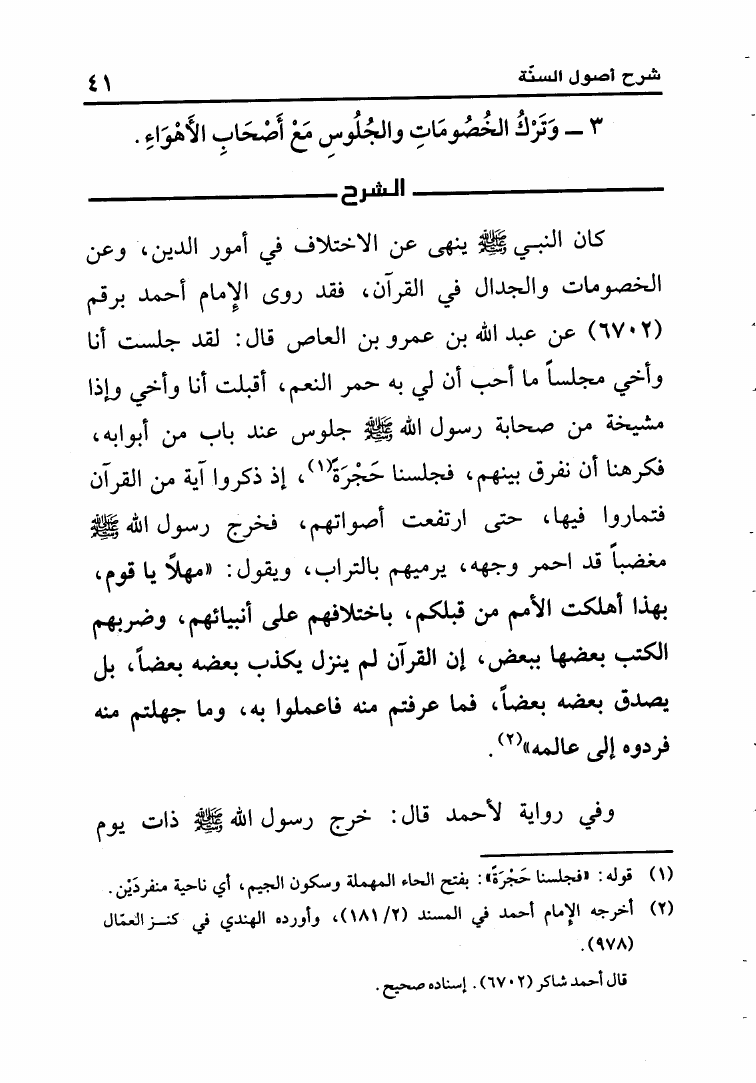 شرح أصول السنّة
٤١
٣ ــ وَتَرْكُ الخُصُومَاتِ والجُلُوسِ مَعْ أَصْحَابِ الأَهْوَاءِ.
الشرح
كان النبي ﷺ ينهى عن الاختلاف في أمور الدين، وعن
الخصومات والجدال في القرآن، فقد روى الإمام أحمد برقم
(٦٧٠٢) عن عبد الله بن عمرو بن العاص قال: لقد جلست أنا
وأخي مجلساً ما أحب أن لي به حمر النعم، أقبلت أنا وأخي وإذا
مشيخة من صحابة رسول الله ﷺ جلوس عند باب من أبوابه،
فكرهنا أن نفرق بينهم، فجلسنا حَجْرَةً(١)، إذ ذكروا آية من القرآن
فتماروا فيها، حتى ارتفعت أصواتهم، فخرج رسول الله ﷺ
مغضباً قد احمر وجهه، يرميهم بالتراب، ويقول: «مهلاً يا قوم،
بهذا أهلكت الأمم من قبلكم، باختلافهم على أنبيائهم، وضربهم
الكتب بعضها ببعض، إن القرآن لم ينزل يكذب بعضه بعضاً، بل
يصدق بعضه بعضاً، فما عرفتم منه فاعملوا به، وما جهلتم منه
فردوه إلى عالمه»(٢).
وفي رواية لأحمد قال: خرج رسول الله ﷺ ذات يوم
(١) قوله: «فجلسنا حَجْرَةً»: بفتح الحاء المهملة وسكون الجيم، أي ناحية منفردَيْن.
(٢) أخرجه الإمام أحمد في المسند (٢/ ١٨١)، وأورده الهندي في كنز العمّال
(٩٧٨).
قال أحمد شاكر (٦٧٠٢). إسناده صحيح.